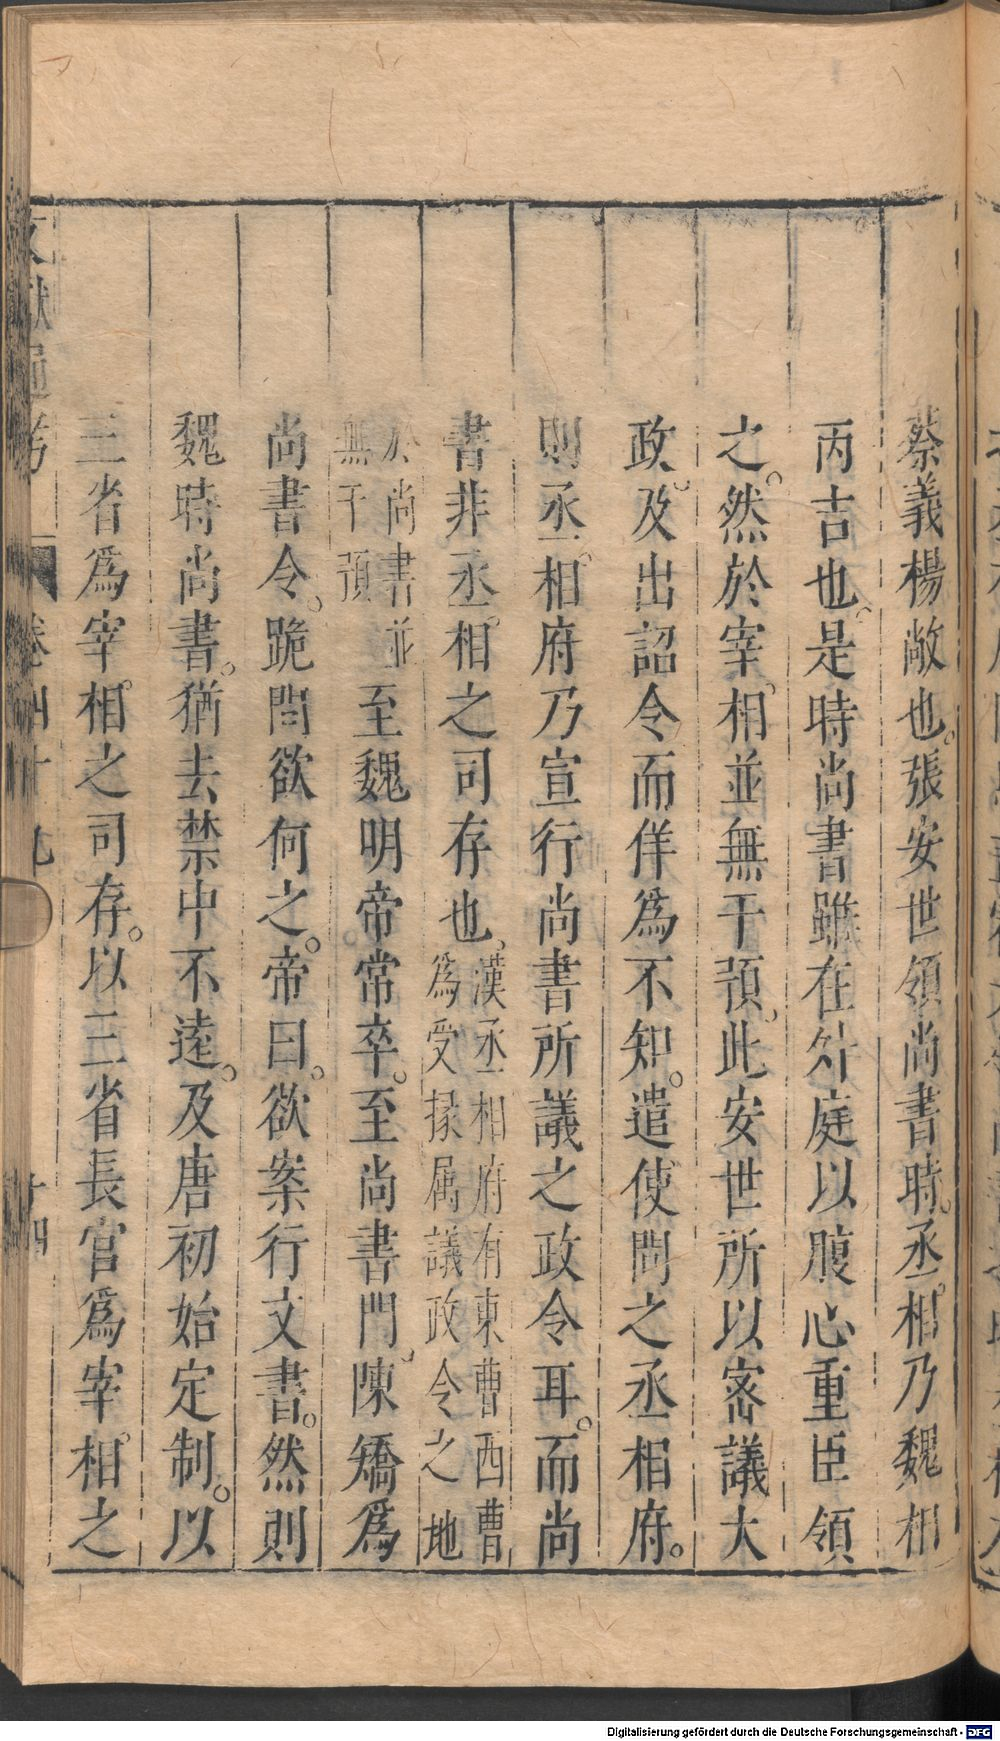 蔡義楊敞也。張安世領尚書時。丞相乃魏相
丙吉也。是時尚書雖在外庭以腹心重臣領
之。然於宰相並無干預。此安世所以密議大
政。及出詔令而佯爲不知。遣使問之丞相府。
則丞相府乃宣行尚書所議之政令耳。而尚
書非丞相之司存也。漢丞相府有東曹西曹
爲受掾属議政令之地
於尚書並
無干預
至魏明帝常卒至尚書門。陳矯爲
尚書令。跪問欲何之。帝曰。欲案行文書。然則
魏時尚書。猶去禁中不遠。及唐初始定制。以
三省爲宰相之司存。以三省長官爲宰相之
文獻通考 卷四十九 十四
Digitalisierung gefördert durch die Deutsche Forschungsgemeinschaft - DFG